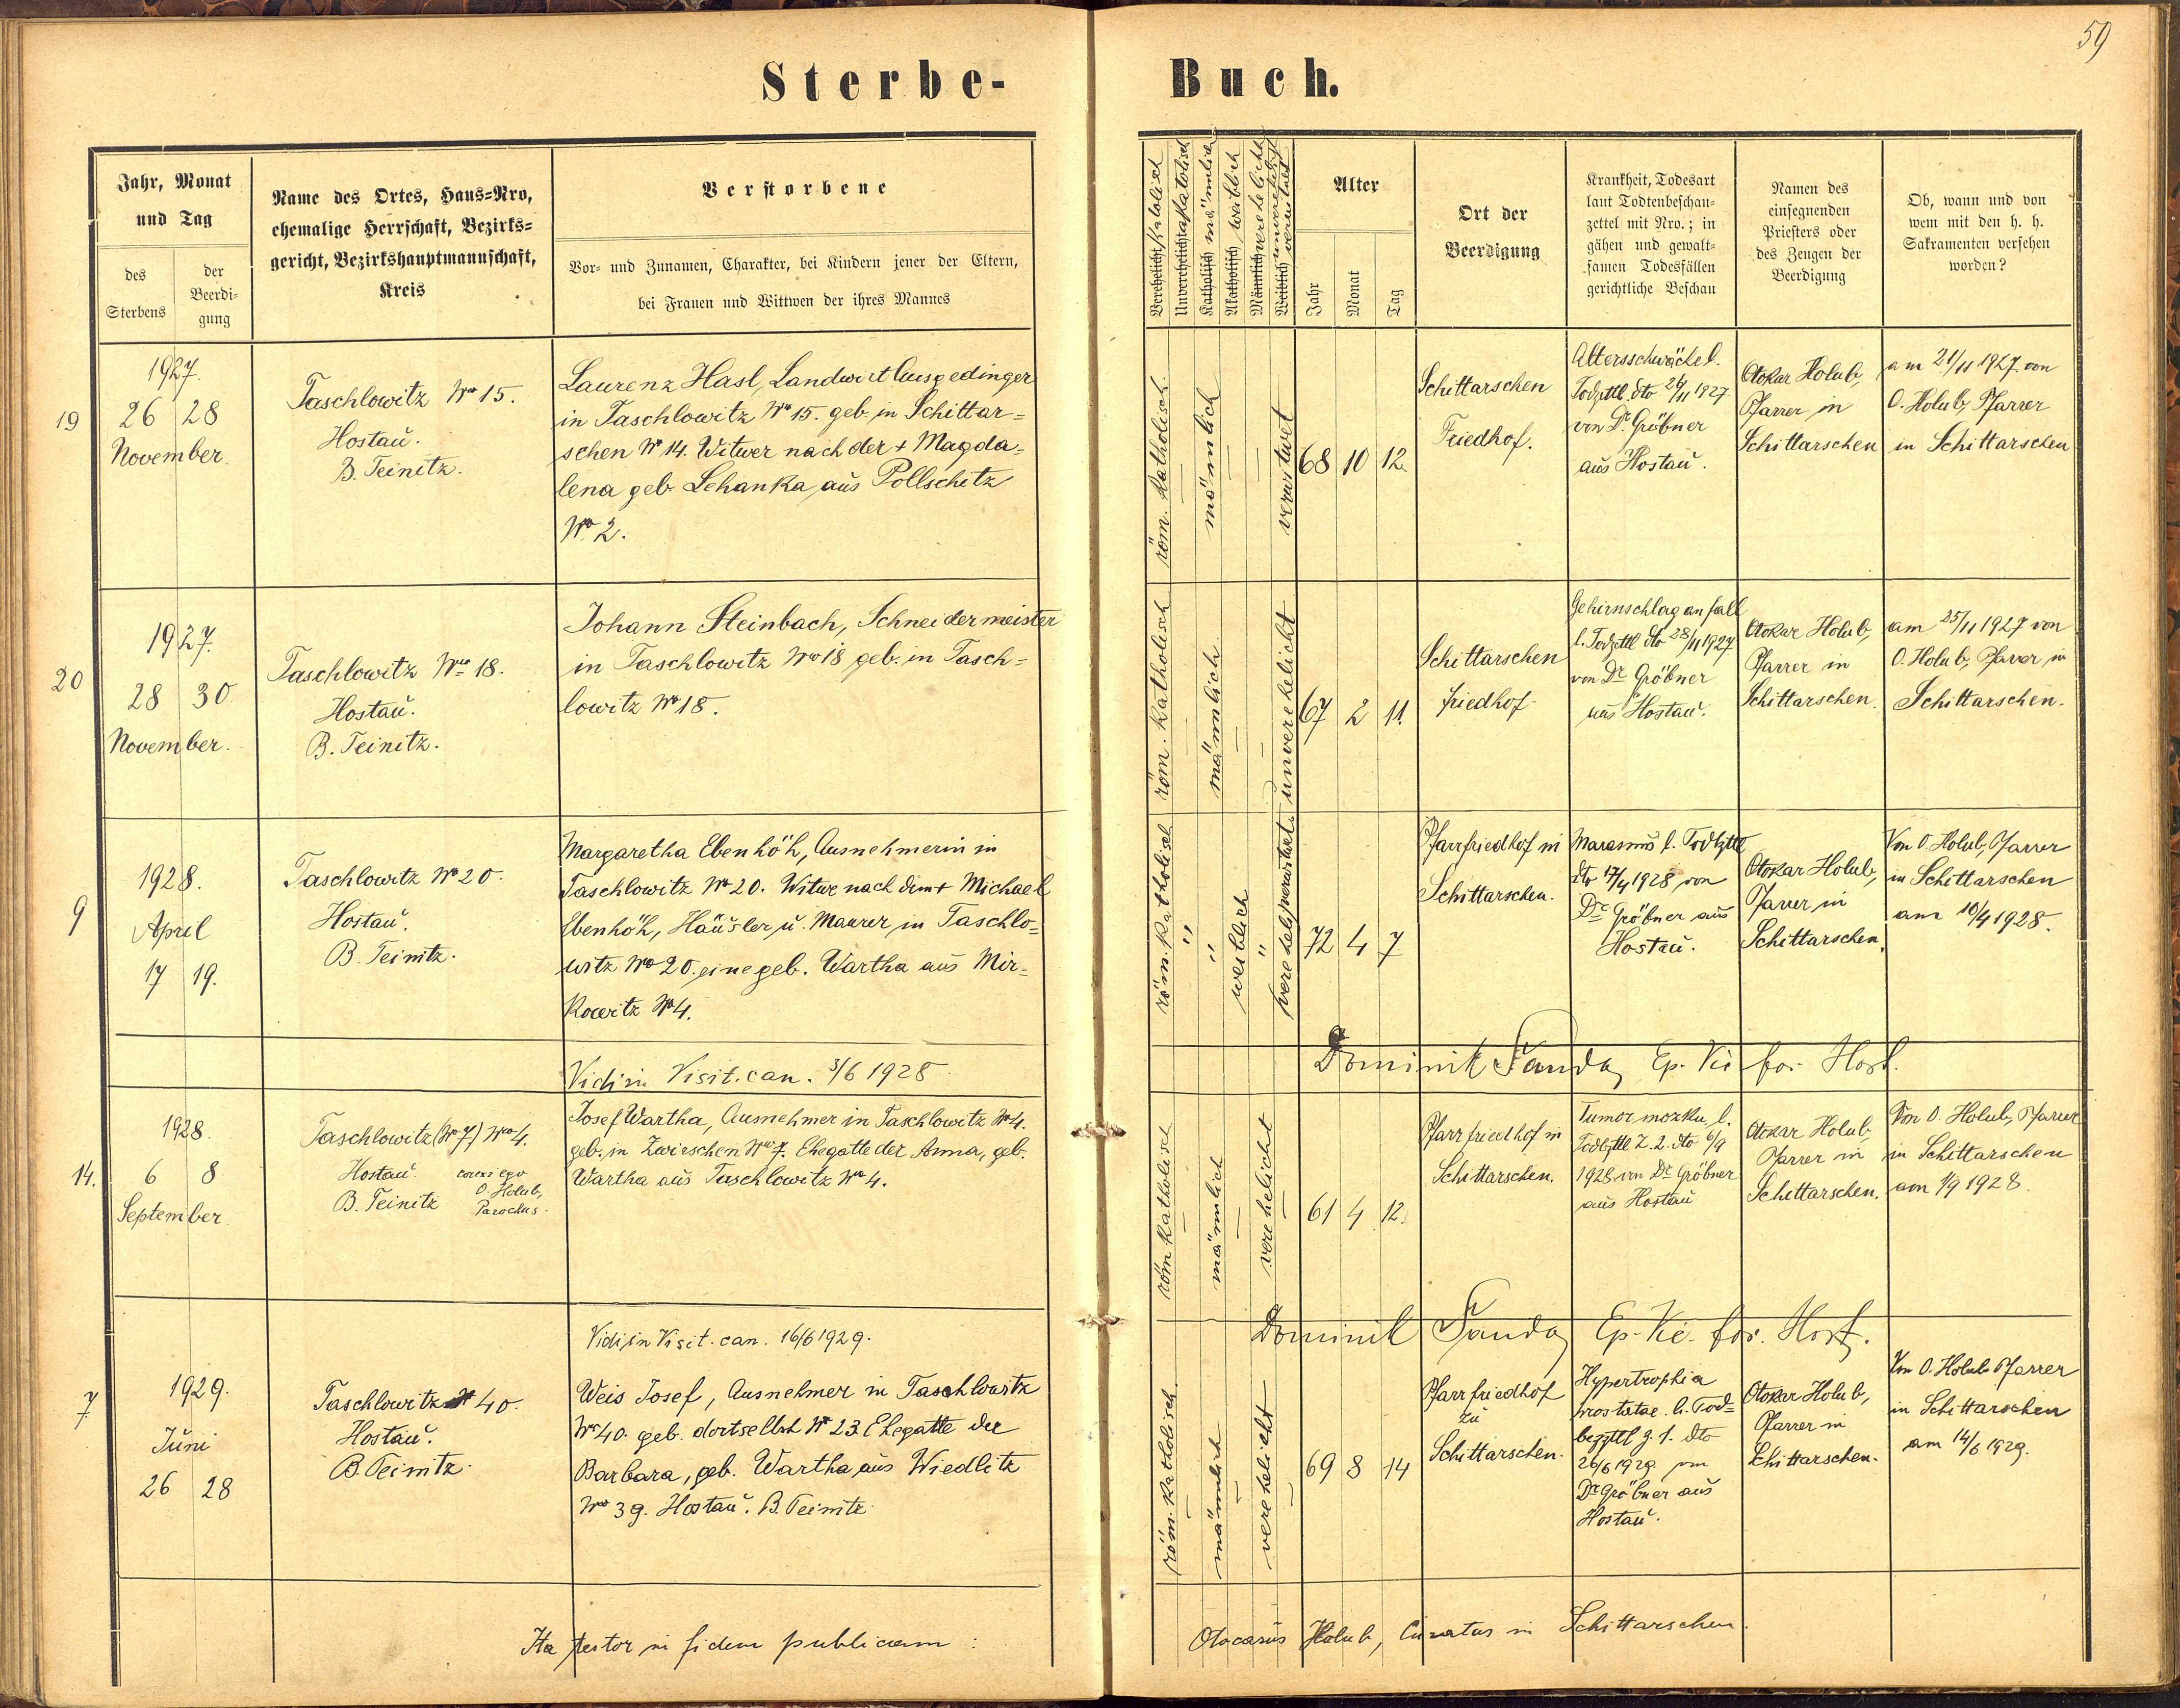 59
Sterbe- Buch.
Jahr, Monat
und Tag
des
Sterbens
der
Beerdi-
gung
Name des Ortes, Haus-Nro,
ehemalige Herrschaft, Bezirks-
gericht, Bezirkshauptmannschaft,
Kreis
Verstorbene
Vor- und Zunamen, Charakter, bei Kindern jener der Eltern,
bei Frauen und Wittwen der ihres Mannes
Verehelicht katolisch
Unverehelicht akatolisch
Katholisch männlich
Akatholisch weiblich
Männlich verehelicht
Weiblich unverehelicht
verwitwet
Alter
Jahr
Monat
Tag
Ort der
Beerdigung
Krankheit, Todesart
laut Todtenbeschau-
zettel mit Nro.; in
gähen und gewalt-
samen Todesfällen
gerichtliche Beschau
Namen des
einsegnenden
Priesters oder
des Zeugen der
Beerdigung
Ob, wann und von
wem mit den h. h.
Sakramenten versehen
worden?
19
1927.
26 28
November.
Taschlowitz No 15.
Hostau.
B. Teinitz.
Laurenz Hasl, Landwirt Ausgedinger
in Taschlowitz No 15. geb. in Schittar=
schen No 14. Witwer nach der + Magda=
lena geb. Lehanka aus Pollschitz
No 2.
röm. katholisch.
männlich
verwitwet
68 10 12.
Schittarschen
Friedhof.
Altersschwäche l.
Todzttl. dto 26/11 1927
von Dr. Gröbner
aus Hostau.
Otokar Holub,
Pfarrer in
Schittarschen
am 21/11 1927. von
O. Holub, Pfarrer
in Schittarschen
20
1927.
28 30
November.
Taschlowitz No 18.
Hostau.
B. Teinitz.
Johann Steinbach, Schneidermeister
in Taschlowitz No 18 geb. in Tasch=
lowitz No 18.
röm. katholisch
männlich
unverehelicht
67 2 11.
Schittarschen
friedhof
Gehirnschlaganfall
l. Todzttl dto 28/11 1927
von Dr Gröbner
aus Hostau.
Otokar Holub,
Pfarrer in
Schittarschen.
am 25/11 1927 von
O. Holub, Pfarrer in
Schittarschen.
9
1928.
April
17 19.
Taschlowitz No 20.
Hostau.
B. Teinitz.
Margaretha Ebenhöh, Ausnehmerin in
Taschlowitz No 20. Witwe nach dem + Michael
Ebenhöh, Häusler u. Maurer in Taschlo=
witz No 20. eine geb. Wartha aus Mir=
kowitz No 4.
röm. katholisch
"
"
weiblich
"
verwitwet.
72 4 7
Pfarrfriedhof in
Schittarschen.
Marasmus l. Todtzttl
dto 17/4 1928 von
Dr Gröbner aus
Hostau.
Otokar Holub,
Pfarrer in
Schittarschen.
Von O. Holub, Pfarrer
in Schittarschen
am 10/4 1928.
Vidi in Visit. can. 3/6 1928
Dominik Sanda, Ep. Vic for. Host.
14.
1928.
6 8
September.
Taschlowitz (No 7) No 4.
Hostau.
B. Teinitz
correxi ego
O. Holub,
Parochus.
Josef Wartha, Ausnehmer in Taschlowitz No 4.
geb. in Zwirschen No 7. Ehegatte der Anna, geb.
Wartha aus Taschlowitz No 4.
röm. katholisch
männlich
verehelicht
61 4 12.
Pfarrfriedhof in
Schittarschen.
Tumor mozku, l.
Todtzttl Z. 2. dto 6/9
1928 von Dr Gröbner
aus Hostau
Otokar Holub,
Pfarrer in
Schittarschen.
Von O. Holub, Pfarrer
in Schittarschen
am 1/9 1928.
Vidi in Visit. can. 16/6 1929.
Dominik Sanda, Ep. Vic. for. Host.
7
1929.
Juni
26 28
Taschlowitz No 40.
Hostau.
B. Teinitz.
Weis Josef, Ausnehmer in Taschlowitz
No 40. geb. dortselbst No 23. Ehegatte der
Barbara, geb. Wartha aus Wiedlitz
No 39. Hostau. B. Teinitz
röm. katholisch.
männlich
verehelicht
69 8 14
Pfarrfriedhof
zu
Schittarschen.
Hypertrophia
prostatae. l. Tod=
bezttl Z. 1. dto
26/6 1929 von
Dr Gröbner aus
Hostau.
Otokar Holub,
Pfarrer in
Schittarschen.
Von O. Holub Pfarrer
in Schittarschen
am 14/6 1929.
Ita testor in fidem publicam:
Otocarus Holub, Curatus in Schittarschen.